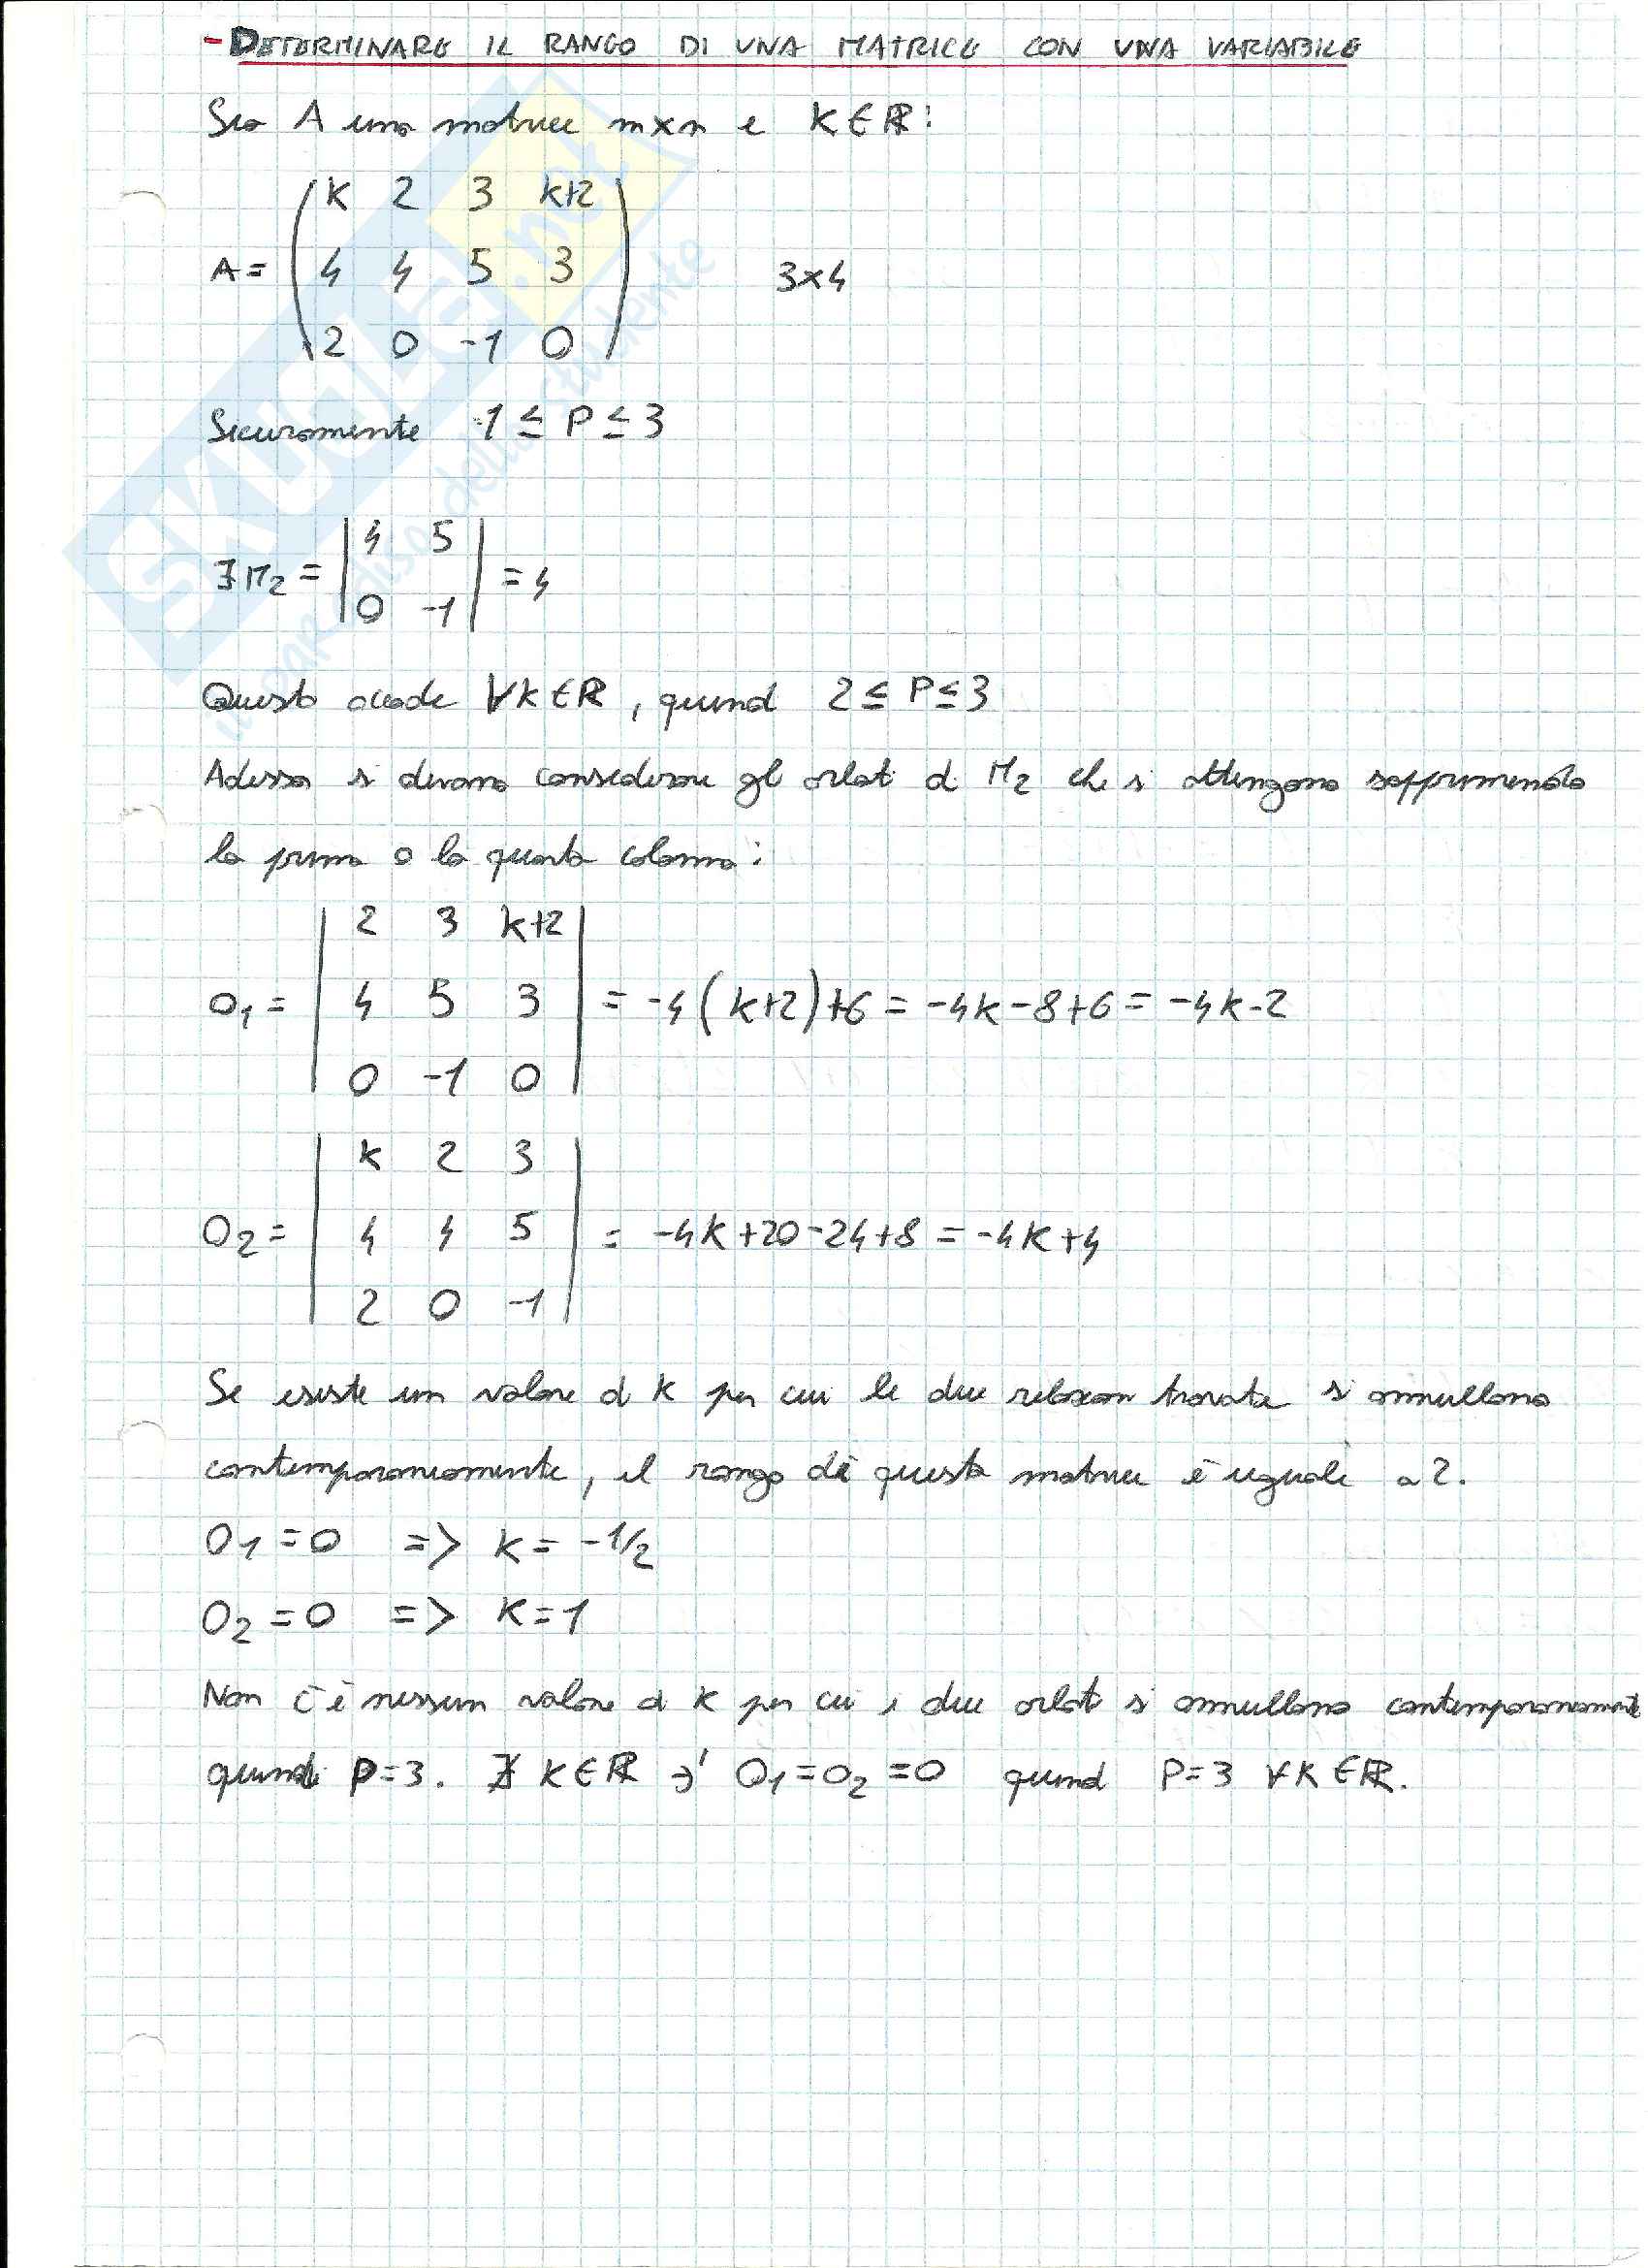 - DETERMINARE IL RANGO DI UNA MATRICE CON UNA VARIABILE
Sia A una matrice m×n e K∈ℝ:
K 2 3 k+2
A = 4 4 5 3 3×4
2 0 -1 0
Sicuramente 1 ≤ P ≤ 3
4 5
∃ M₂ = = 4
0 -1
Questo accade ∀K∈ℝ, quindi 2 ≤ P ≤ 3
Adesso si devono considerare gli orlati di M₂ che si ottengono sopprimendo
la prima o la quarta colonna:
2 3 k+2
O₁ = 4 5 3 = -4(k+2)+6 = -4k-8+6 = -4k-2
0 -1 0
k 2 3
O₂ = 4 4 5 = -4k+20-24+8 = -4k+4
2 0 -1
Se esiste un valore di k per cui le due relazioni trovate si annullano
contemporaneamente, il rango di questa matrice è uguale a 2.
O₁ = 0 => k = -1/2
O₂ = 0 => k = 1
Non c'è nessun valore di k per cui i due orlati si annullano contemporaneamente
quindi P=3. ∄ K∈ℝ ∋' O₁=O₂=0 quindi P=3 ∀K∈ℝ.
SKUOLA.net
il paradiso dello studente